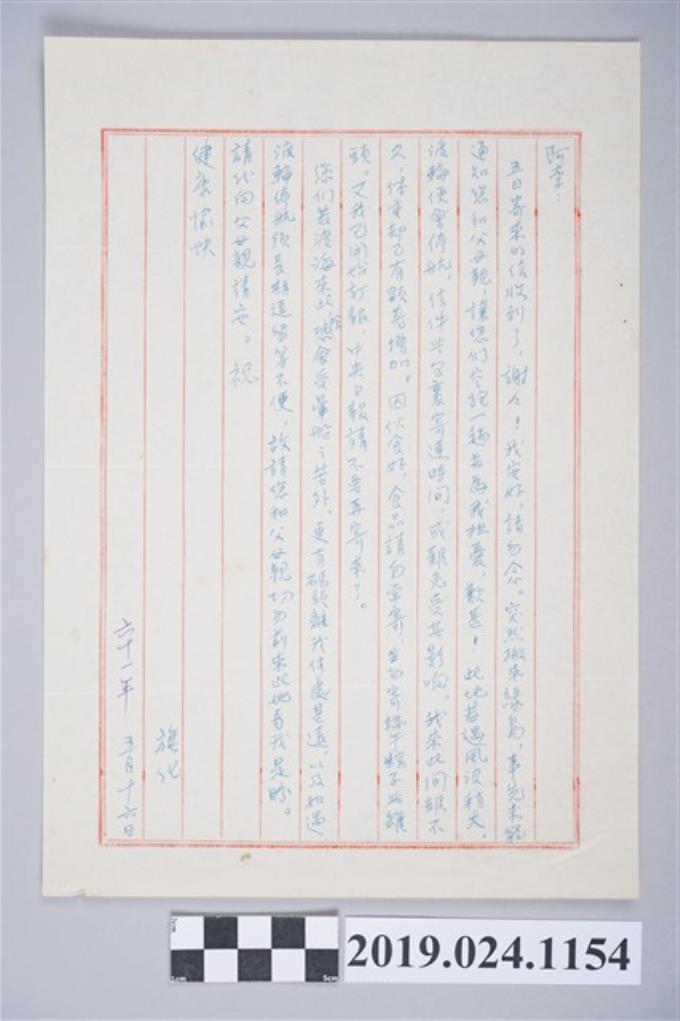 阿李：
五日寄來的信收到了，謝々！我安好，請勿念。突然搬來綠島，事先未能
通知您和父母親，讓您們空跑一趟並為我担憂，歉甚！此地若遇風波稍大，
渡輪便會停航，信件與包裹寄達時間，或難免受其影响。我來此間雖不
久，体重却已有顕著增加。因伙食好，食品請勿寄，並勿寄粽子與罐
頭。又我已開始訂報，中央日報請不要再寄來了。
您們若渡海來此，除會受暈船之苦外，更有碼頭離我住處甚遠，以及如遇
渡輪停航須長期逗留等不便，故請您和父母親切勿前來此地看我是盼。
請代向父母親請安。祝
健康愉快
旗化
六十一年 五月十六日
2019.024.1154
2cm
1cm
5cm